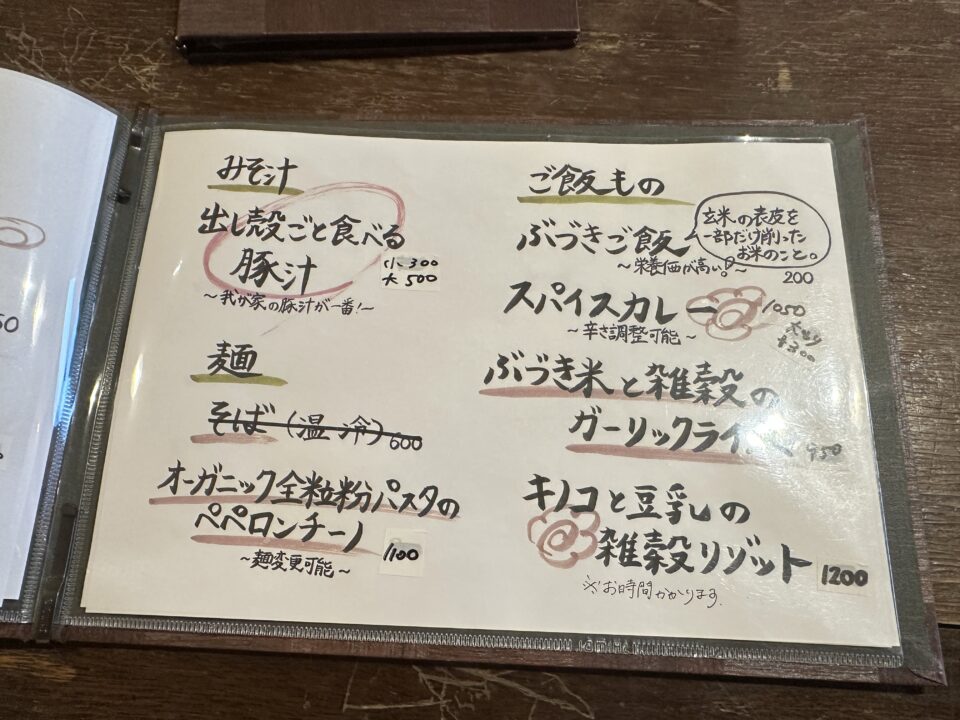 みそ汁
出し殻ごと食べる
豚汁
小 300
大 500
～我が家の豚汁が一番！～
麺
そば（温・冷）600
オーガニック全粒粉パスタの
ペペロンチーノ
1100
～麺変更可能～
ご飯もの
ぶづきご飯
玄米の表皮を
一部だけ削った
お米のこと。
～栄養価が高い！～
200
スパイスカレー 1050
～辛さ調整可能～
+200
ぶづき米と雑穀の
ガーリックライス 950
キノコと豆乳の
雑穀リゾット 1200
※お時間かかります。
50